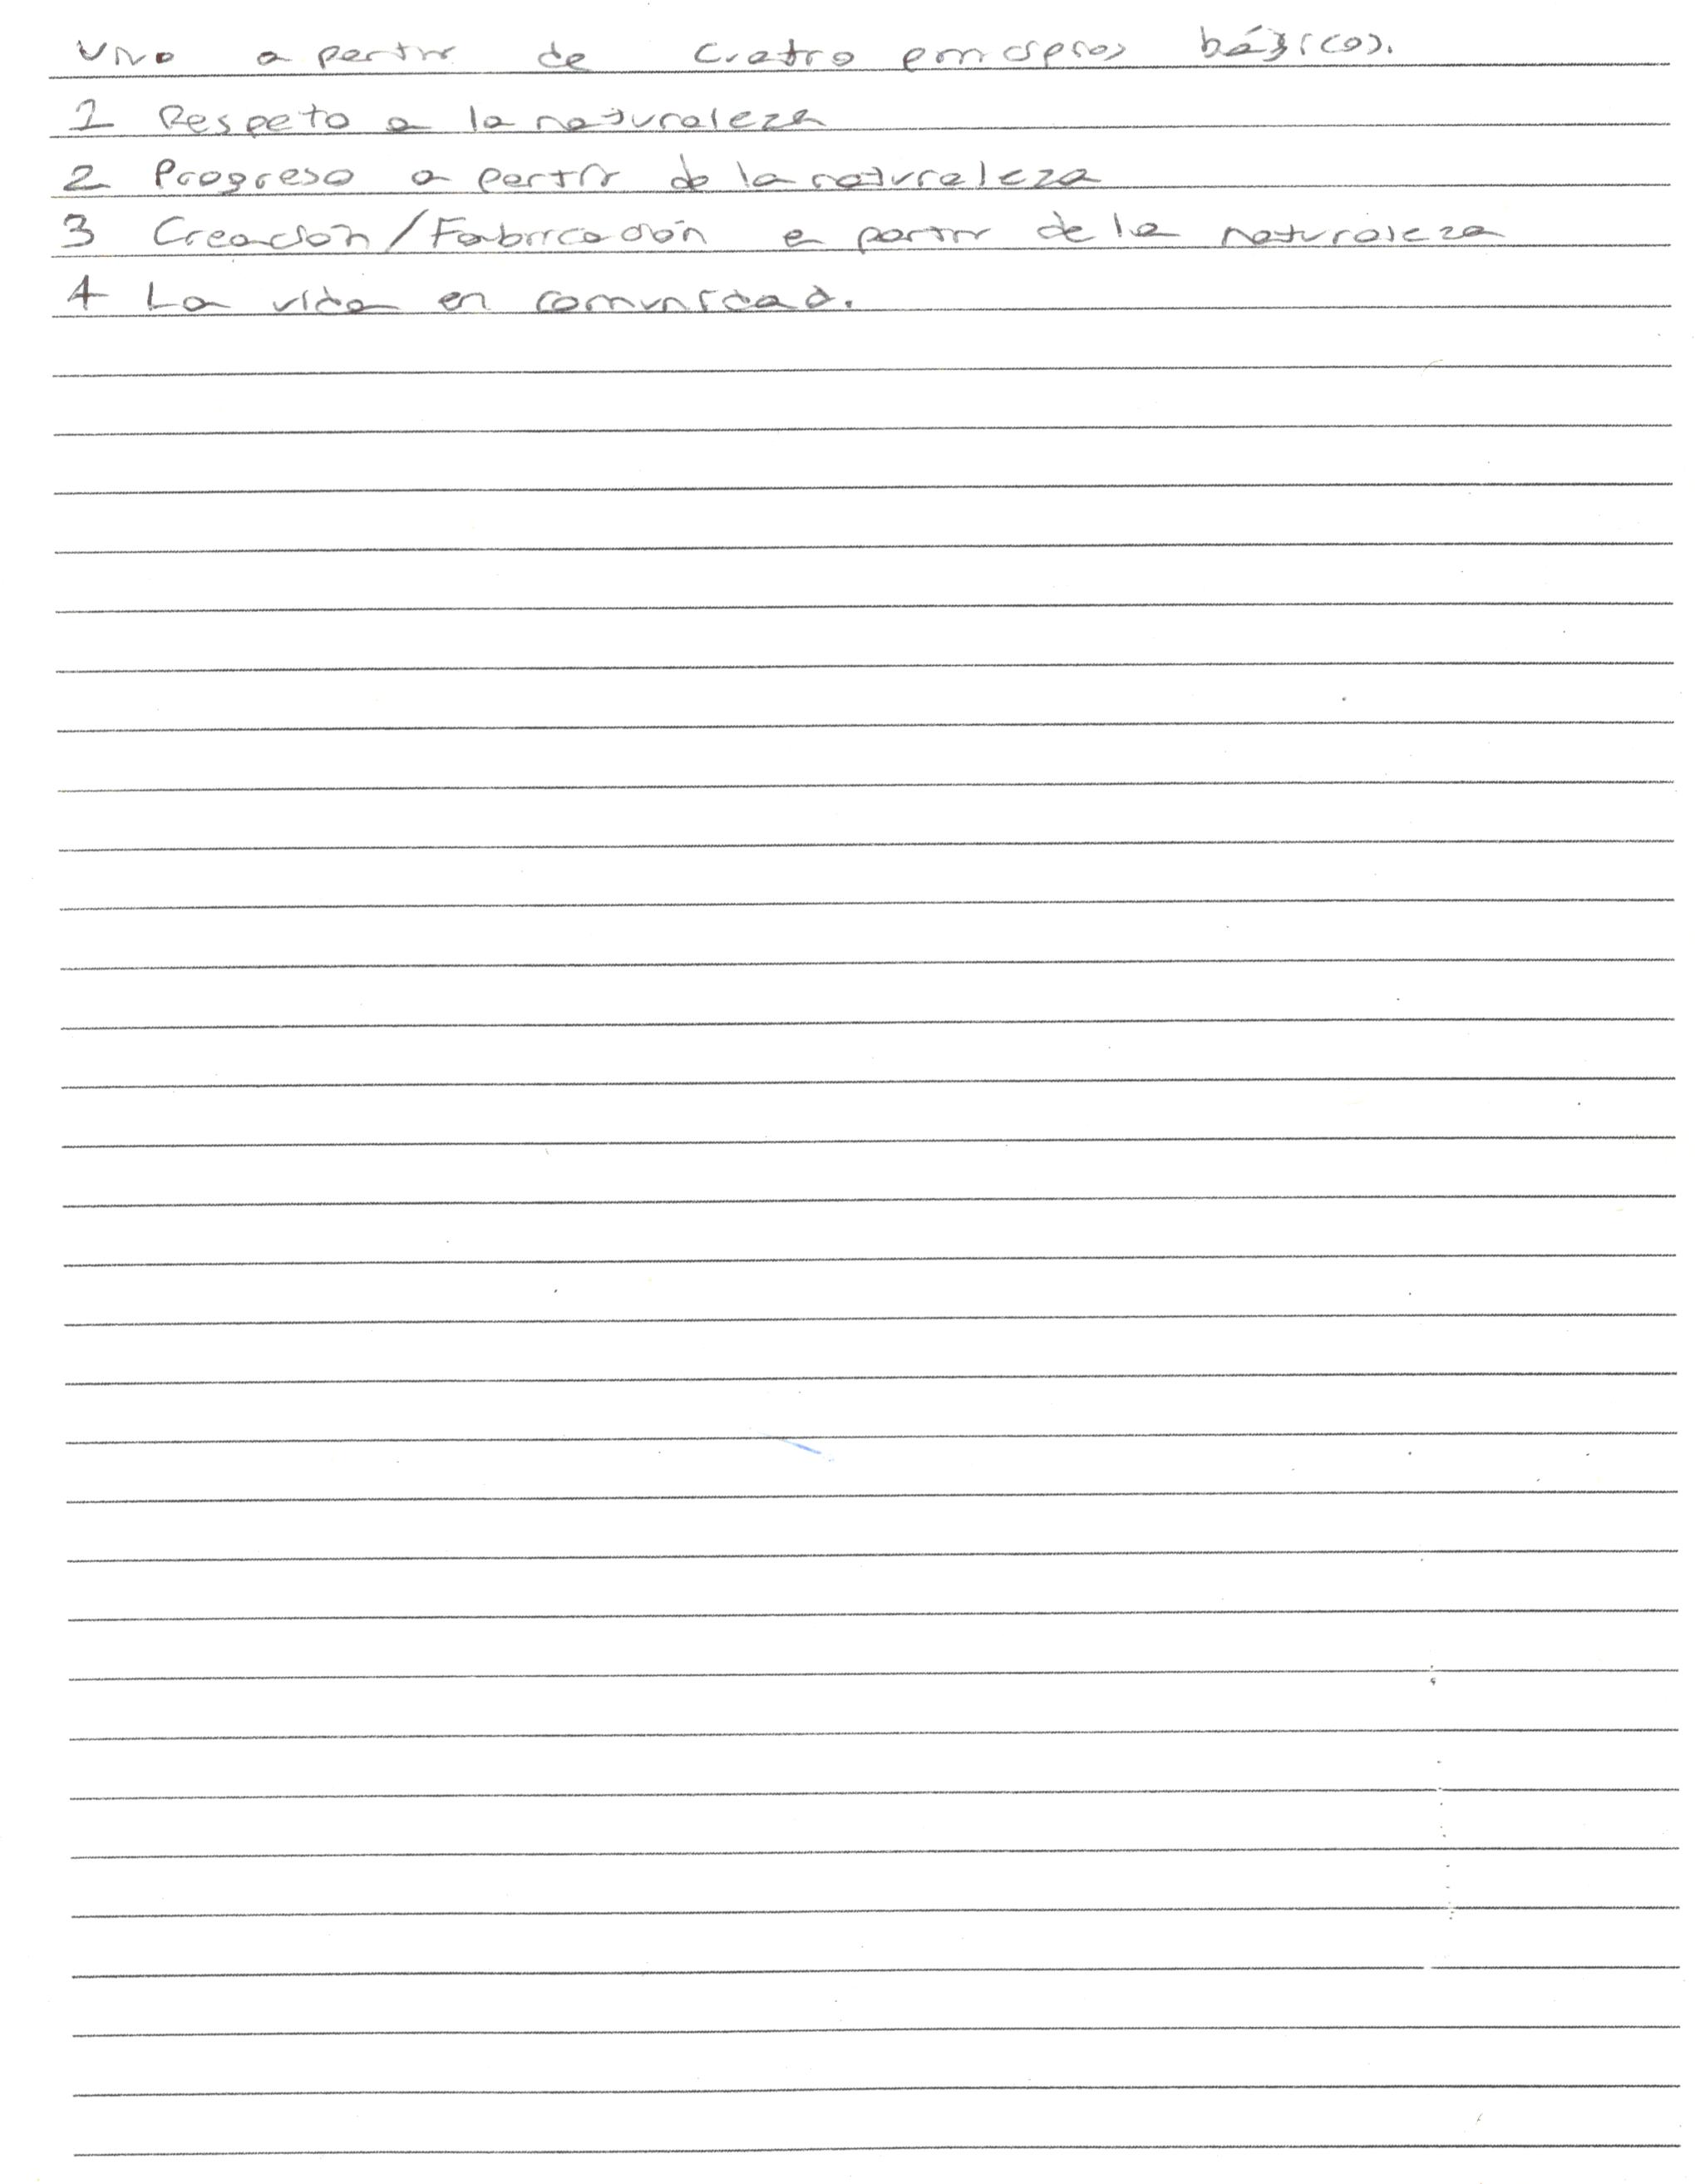 Vivo a partir de cuatro principios básicos.
1 Respeto a la naturaleza
2 Progreso a partir de la naturaleza
3 Creación/Fabricación a partir de la naturaleza
4 La vida en comunidad.